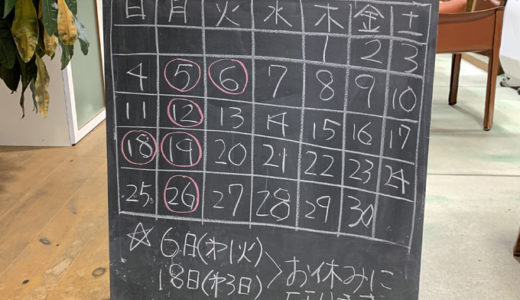 日 月 火 水 木 金 土
1 2 3
4 5 6 7 8 9 10
11 12 13 14 15 16 17
18 19 20 21 22 23 24
25 26 27 28 29 30
☆ 6日(第1火)
18日(第3日) > お休みに